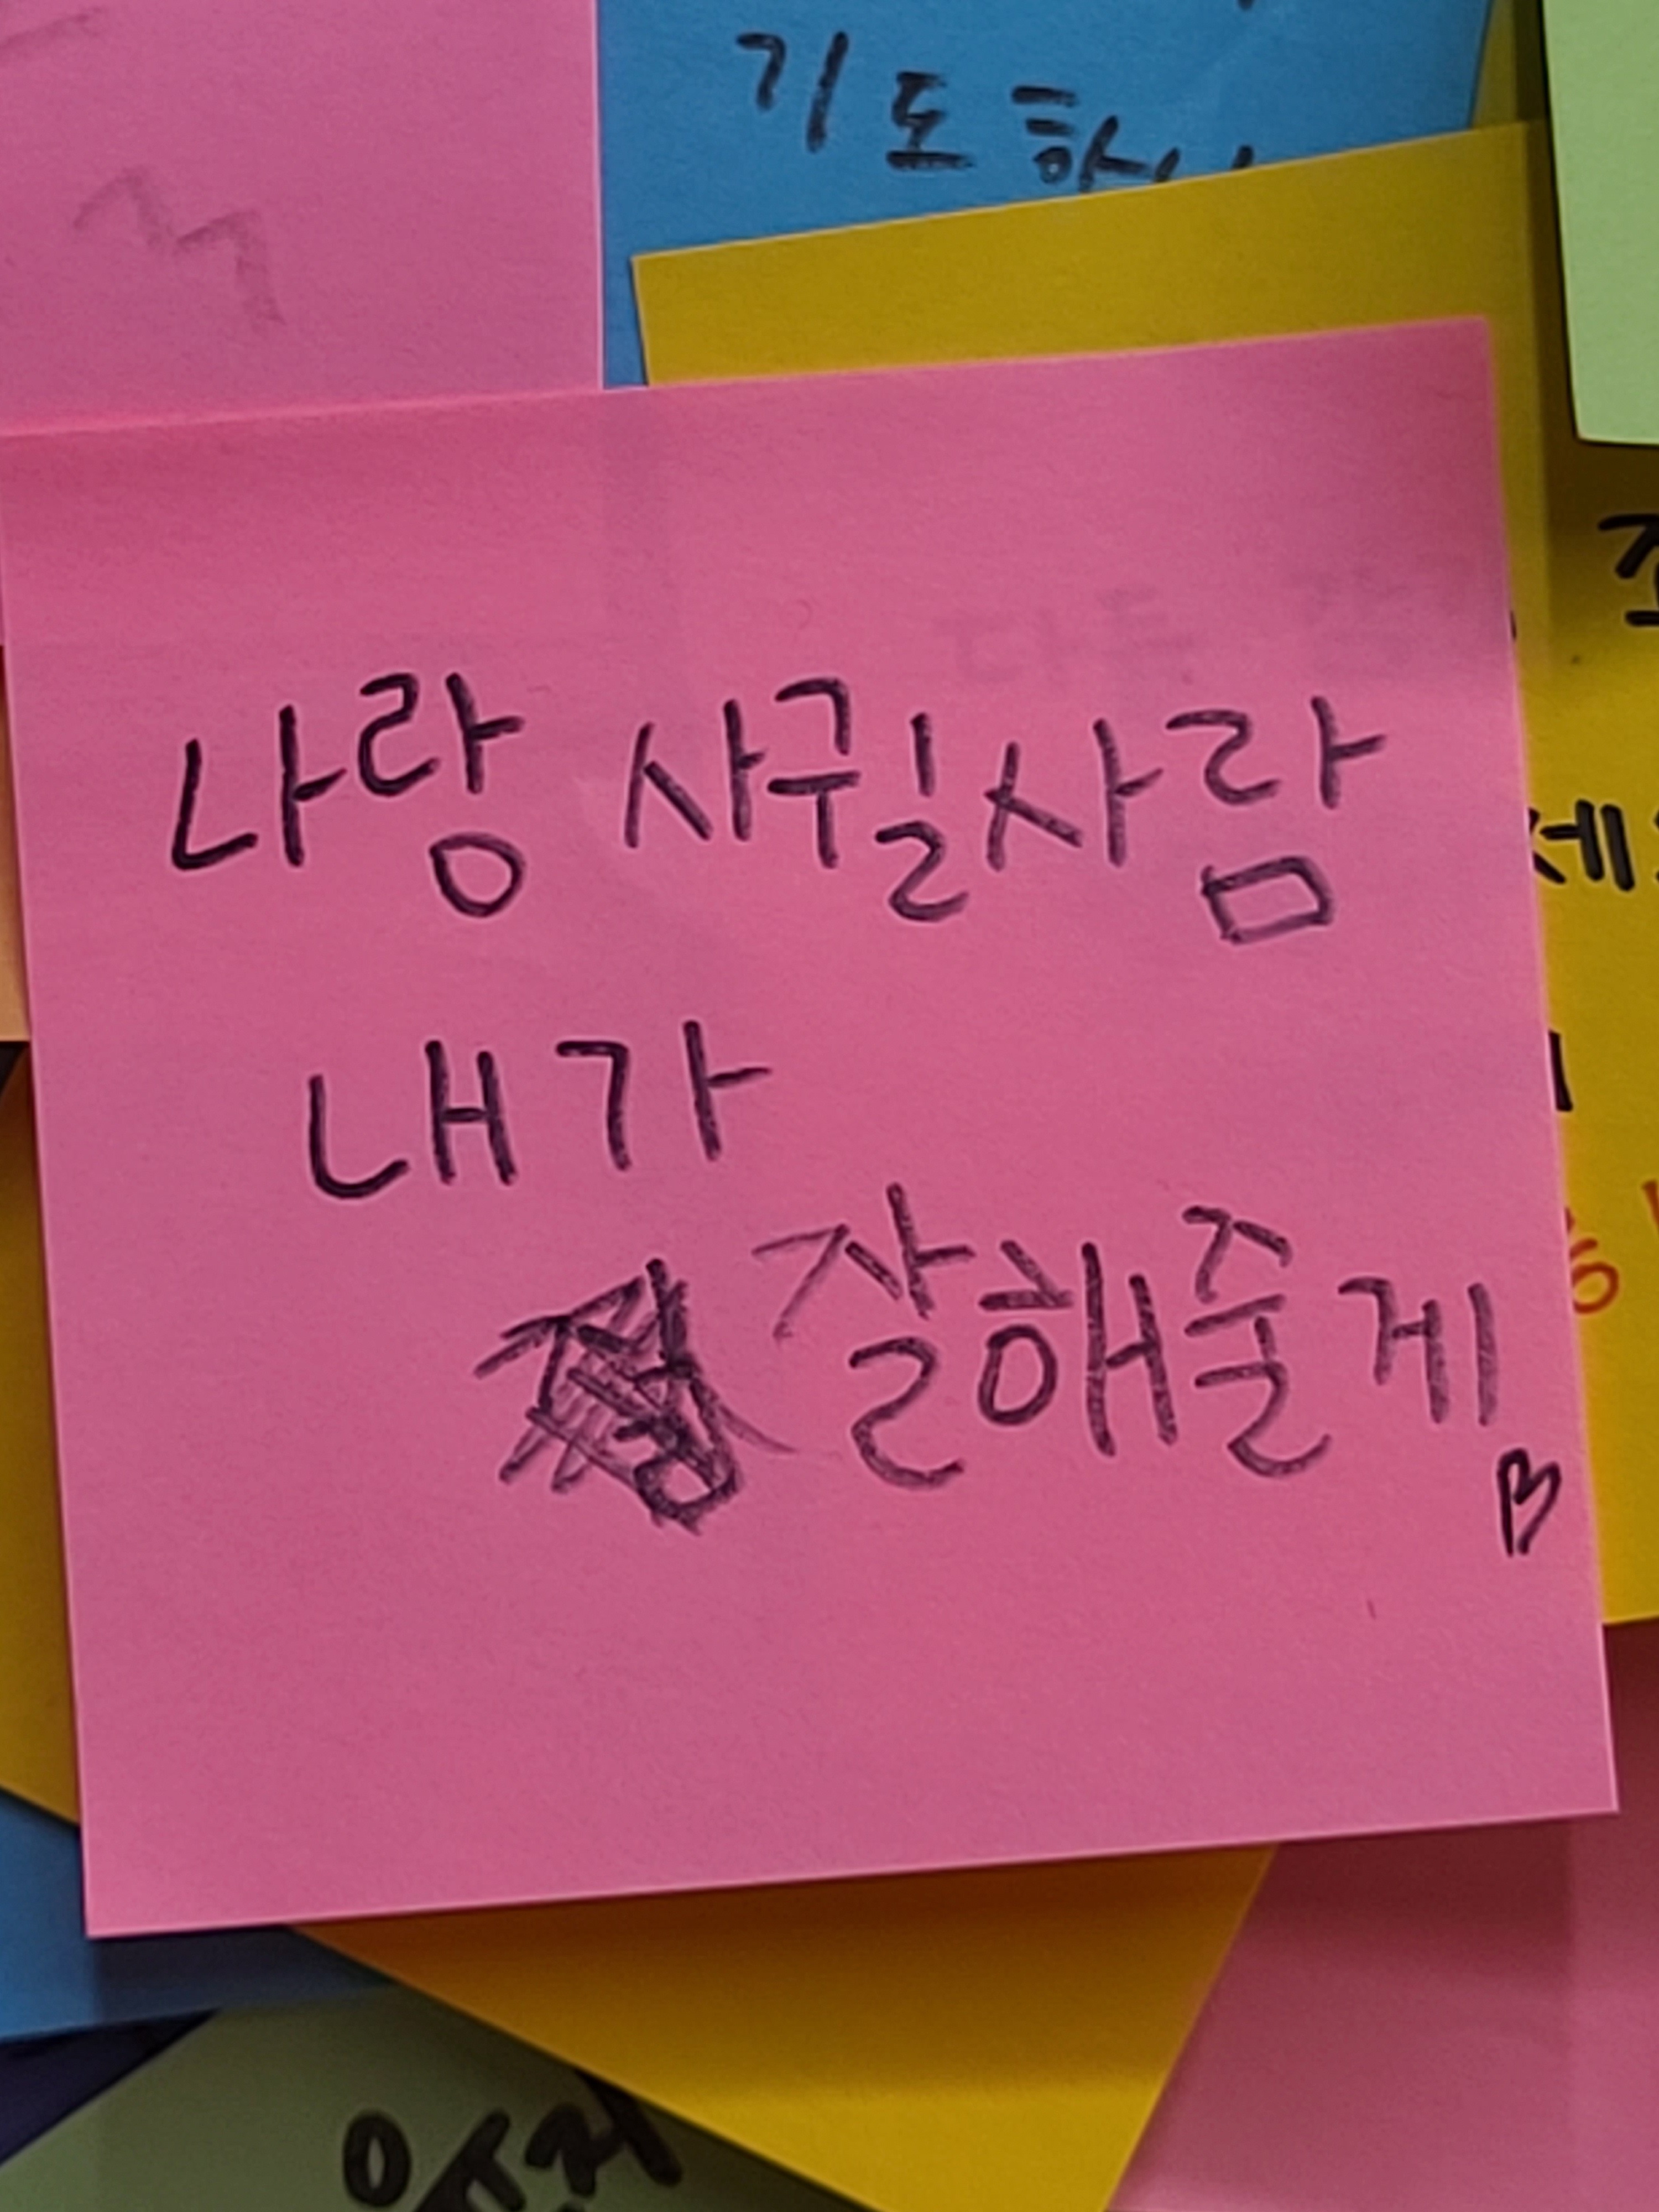 기도하
나랑 사귈사람
내가
잘해줄게♡